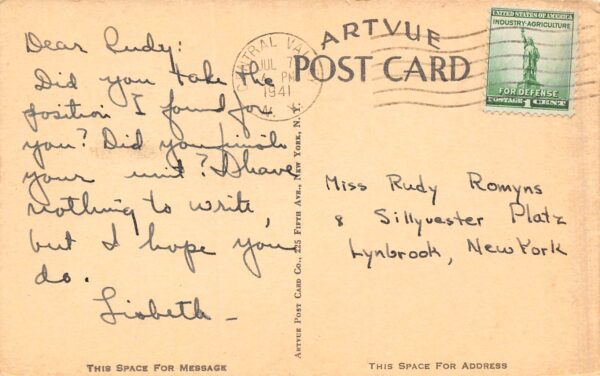 Dear Rudy:
Did you take the
position I found for
you? Did you finish
your unit? I have
nothing to write,
but I hope you
do.
Lisbeth –
THIS SPACE FOR MESSAGE
ARTVUE POST CARD CO., 225 FIFTH AVE., NEW YORK, N. Y.
ARTVUE
POST CARD
CENTRAL VALLEY
JUL 7
PM
1941
UNITED STATES OF AMERICA
INDUSTRY·AGRICULTURE
FOR DEFENSE
POSTAGE 1 CENT
Miss Rudy Romyns
8 Sillyvester Platz
Lynbrook, New York
THIS SPACE FOR ADDRESS